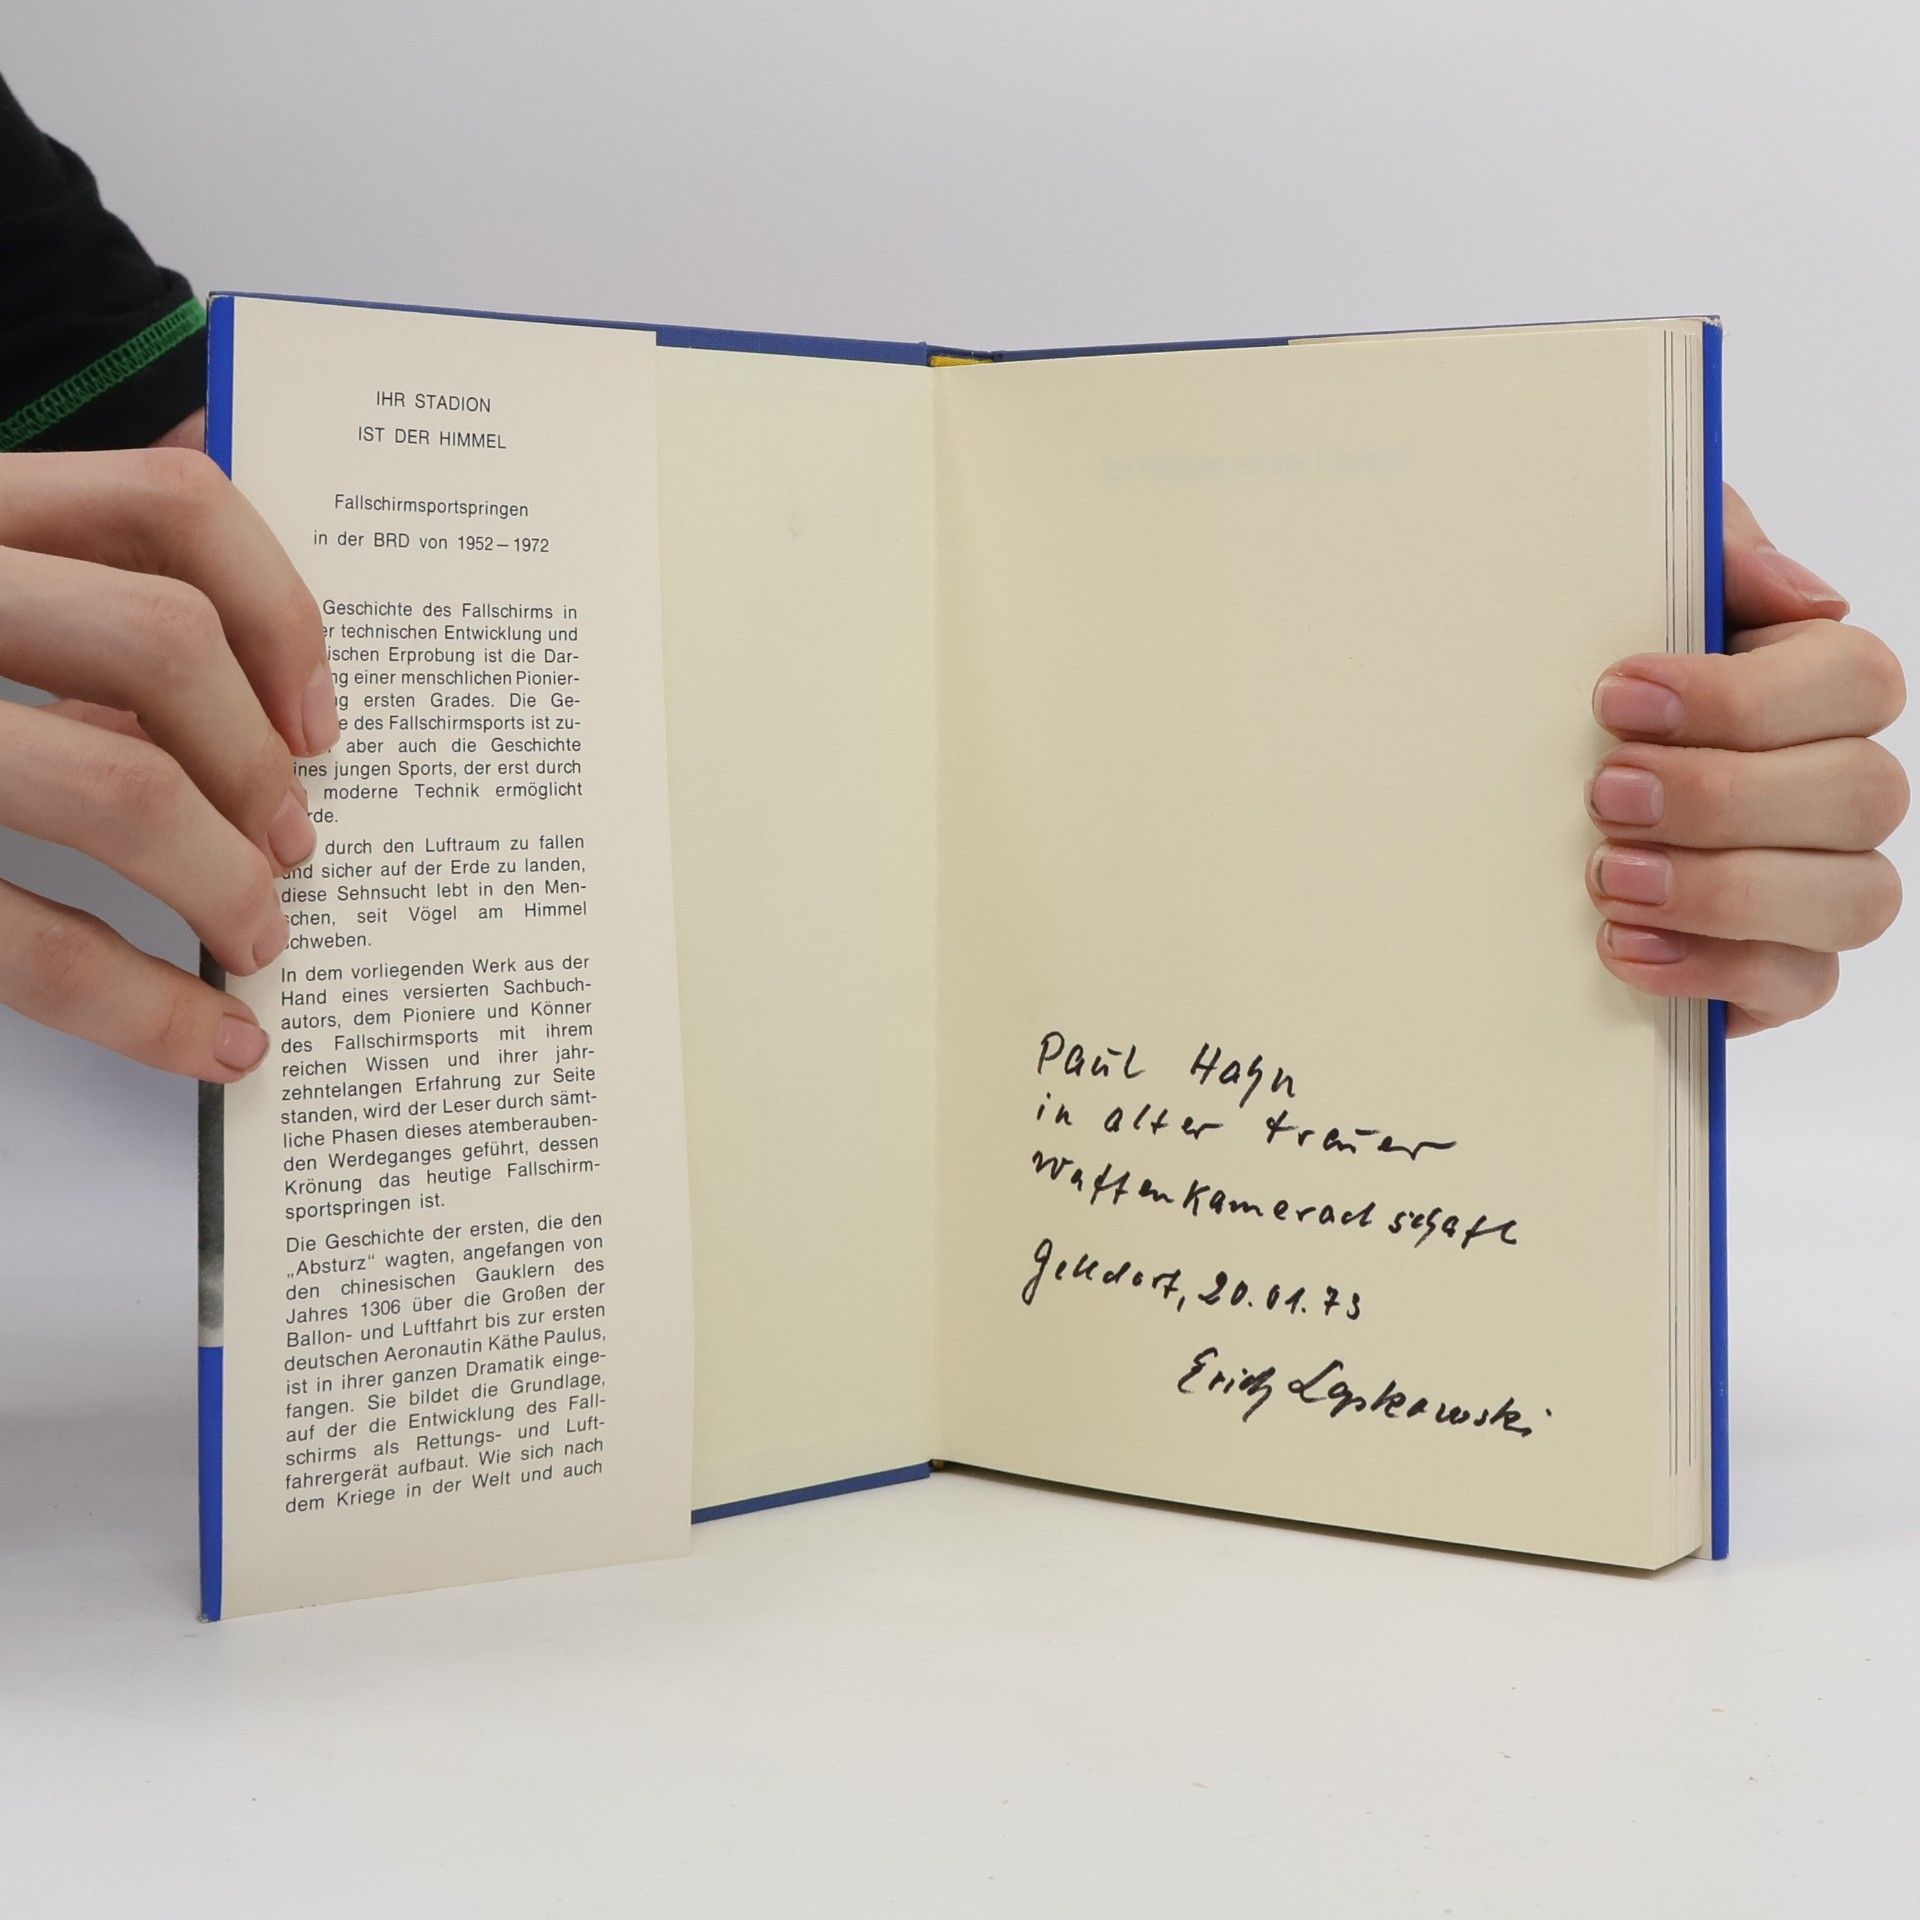 IHR STADION
IST DER HIMMEL
Fallschirmsportspringen
in der BRD von 1952–1972
Geschichte des Fallschirms in
er technischen Entwicklung und
ischen Erprobung ist die Dar-
ng einer menschlichen Pionier-
ng ersten Grades. Die Ge-
e des Fallschirmsports ist zu-
aber auch die Geschichte
ines jungen Sports, der erst durch
moderne Technik ermöglicht
rde.
durch den Luftraum zu fallen
und sicher auf der Erde zu landen,
diese Sehnsucht lebt in den Men-
schen, seit Vögel am Himmel
schweben.
In dem vorliegenden Werk aus der
Hand eines versierten Sachbuch-
autors, dem Pioniere und Könner
des Fallschirmsports mit ihrem
reichen Wissen und ihrer jahr-
zehntelangen Erfahrung zur Seite
standen, wird der Leser durch sämt-
liche Phasen dieses atemberauben-
den Werdeganges geführt, dessen
Krönung das heutige Fallschirm-
sportspringen ist.
Die Geschichte der ersten, die den
„Absturz“ wagten, angefangen von
den chinesischen Gauklern des
Jahres 1306 über die Großen der
Ballon- und Luftfahrt bis zur ersten
deutschen Aeronautin Käthe Paulus,
ist in ihrer ganzen Dramatik einge-
fangen. Sie bildet die Grundlage,
auf der die Entwicklung des Fall-
schirms als Rettungs- und Luft-
fahrergerät aufbaut. Wie sich nach
dem Kriege in der Welt und auch
Paul Hahn
in alter treuer
Waffenkameradschaft
20.01.73
Erich Lepkowski